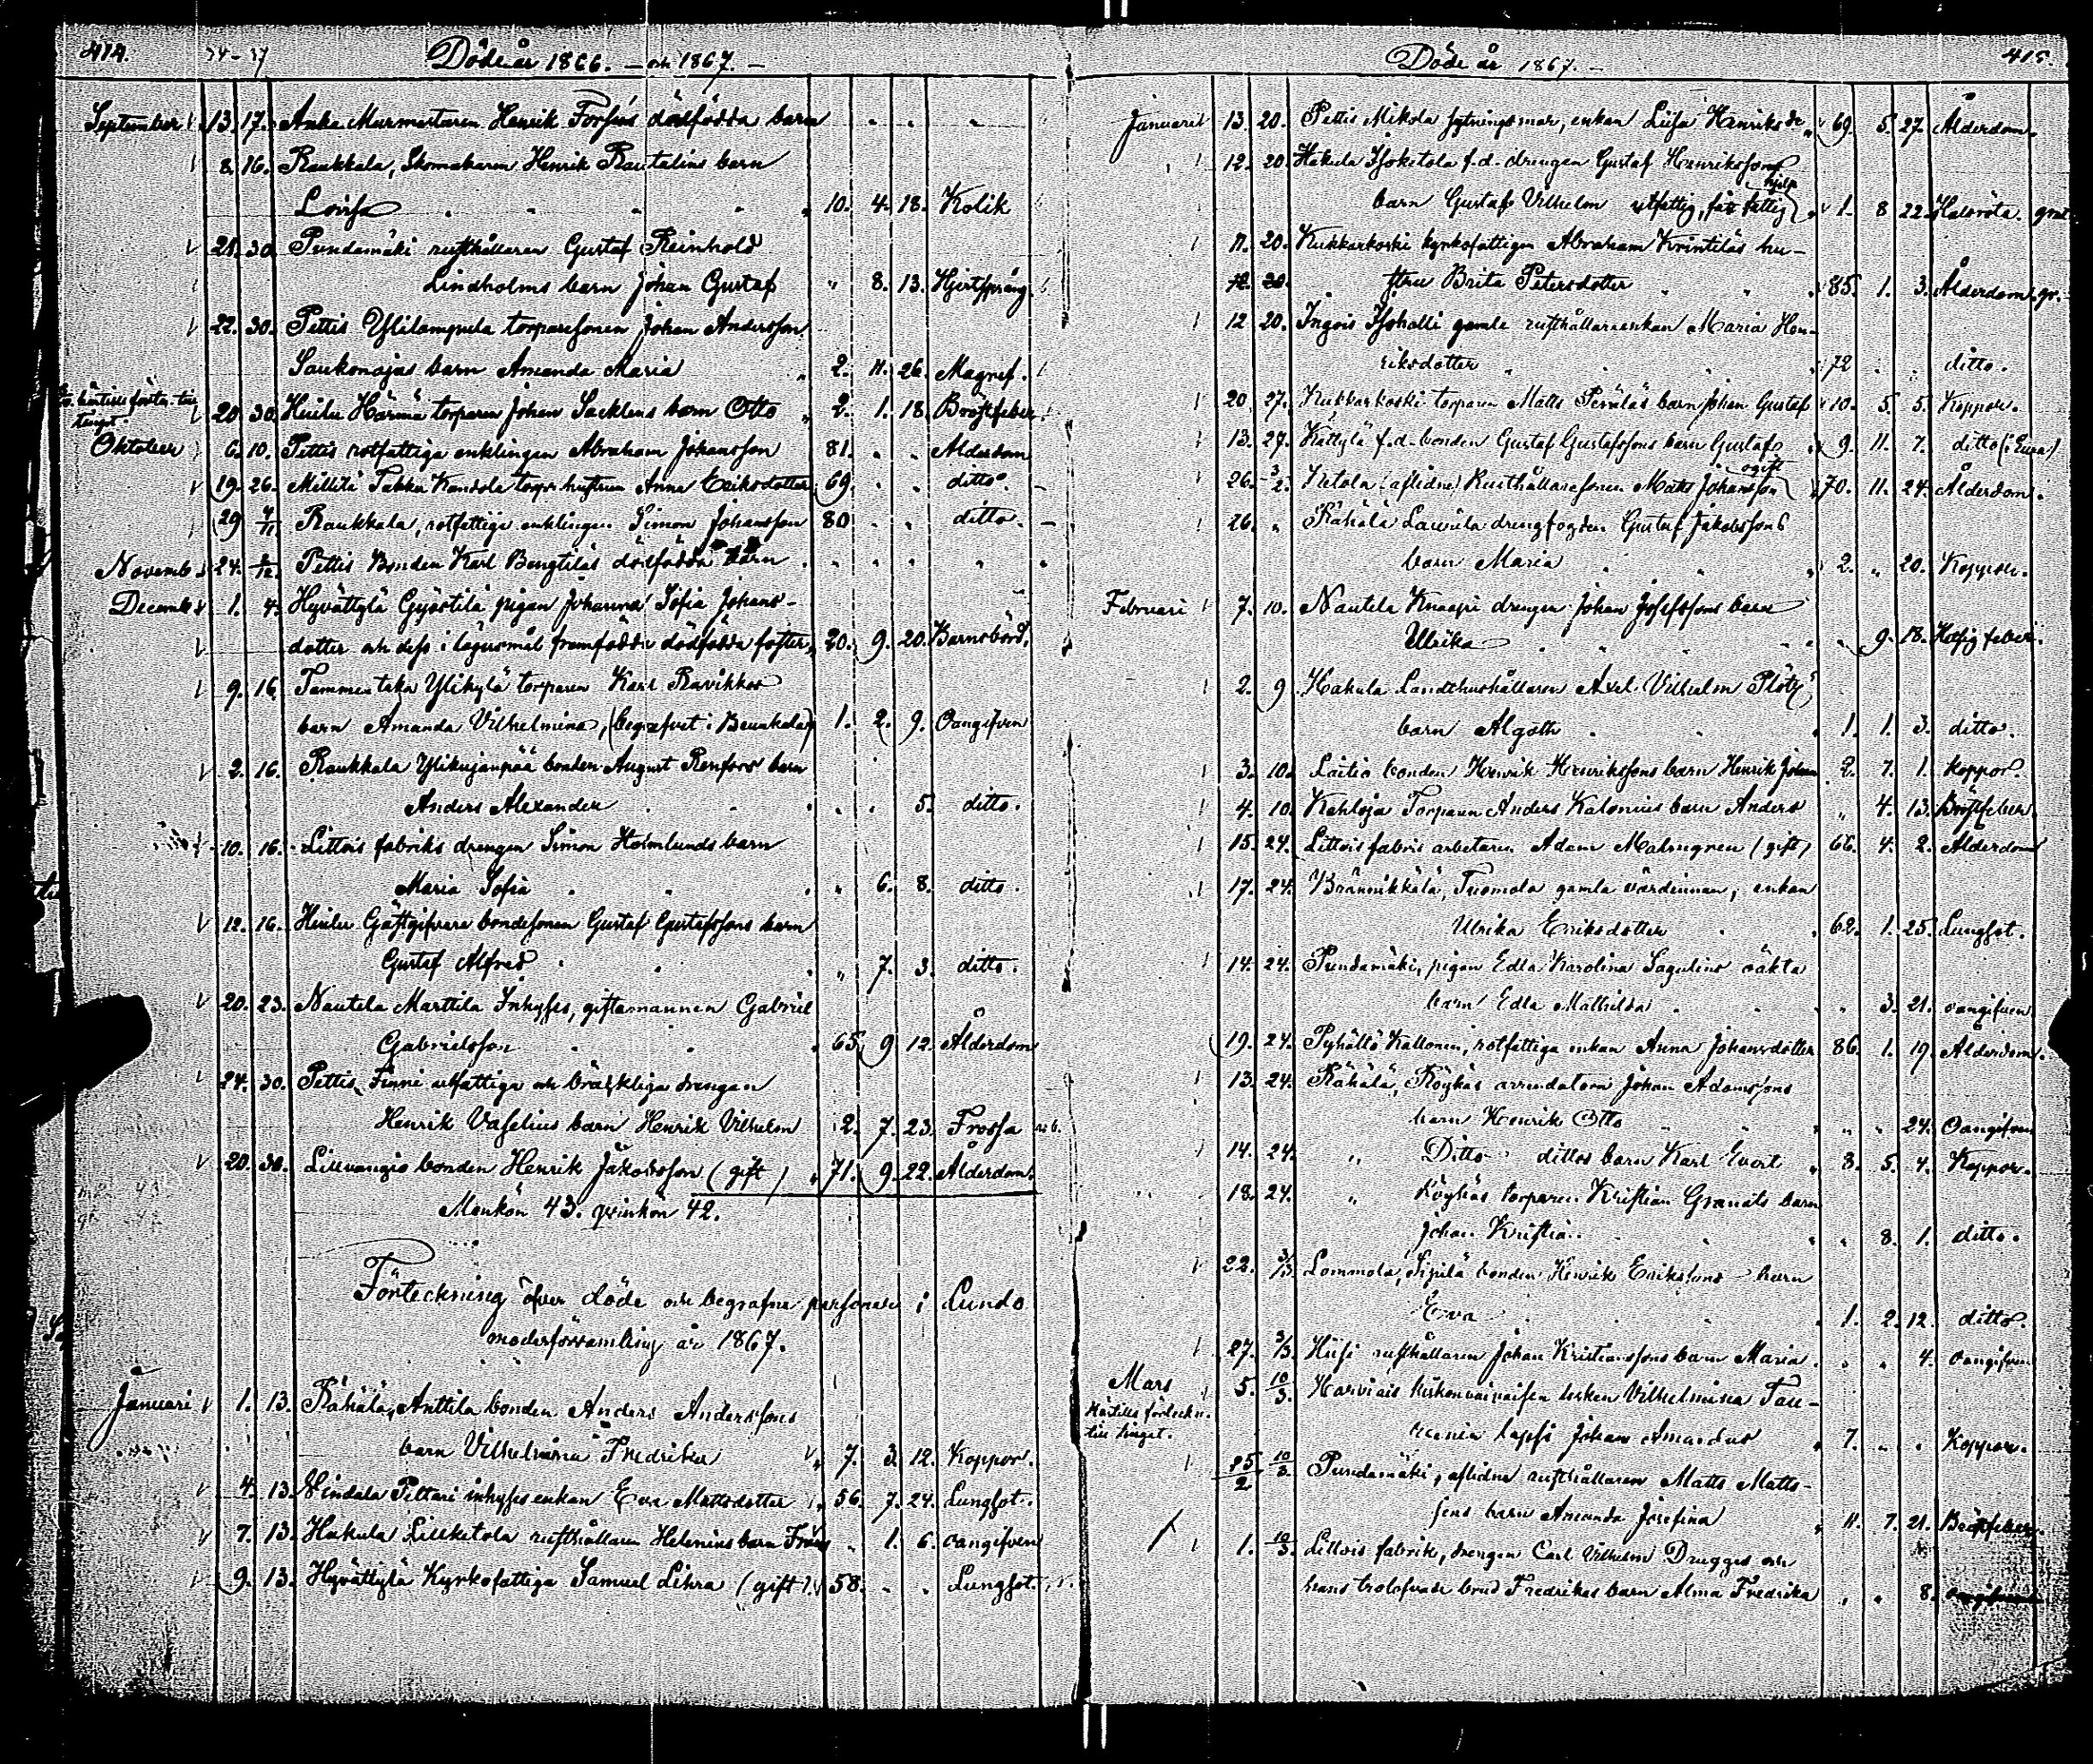 414. 34-37 Döde år 1866. – och 1867. –
September 13. 17. Anka Murmestaren Henrik Forséns dödfödda barn
8. 16. Raukkala, Skomakaren Henrik Rautalins barn
Lovisa 10. 4. 18. Kolik
21. 30. Pundamäki rusthållaren Gustaf Reinhold
Lindholms barn Johan Gustaf " 8. 13. Hjertsprång.
22. 30. Pettis Ylilampula torparesonen Johan Andersson
Saukonojas barn Amanda Maria 2. 11. 26. Magnef.
till tinget.
20. 30. Hiilu Härmä torparen Johan Sacklens barn Otto 2. 1. 18. Bröstfeber
Oktober 6. 10. Pettis rotfattiga enklingen Abraham Johansson 81. " " Ålderdom
19. 26. Millilä Takku Kandola torp. hustrun Anna Eriksdotter 69. " " ditto.
29 4/11. Raukkala, rotfattiga enklingen Simon Johansson 80 " " ditto.
Novemb. 24. 2/12. Pettis Bonden Karl Bengtiläs dödfödda barn
Decemb. 1. 4. Hyvättylä Gyöstilä pigan Johanna Sofia Johans-
dotter och dess i lägersmål framfödde dödfödda foster 20. 9. 20. Barnsbörd.
9. 16. Tammentaka Ylikylä torparen Karl Ravikkos
barn Amanda Vilhelmina, (begrafvet i Reuskala) 1. 2. 9. Oangifven
2. 16. Raukkala Ylikujanpää bonden August Renfors barn
Anders Alexander " " 5. ditto.
10. 16. Littois fabriks drengen Simon Holmlunds barn
Maria Sofia " 6. 8. ditto.
12. 16. Hiilu Gästgifvare bondesonen Gustaf Gustafssons barn
Gustaf Alfred " 7. 3. ditto.
20. 23. Nautela Marttila Inhyses, giftamannen Gabriel
Gabrielsson 65. 9 12. Ålderdom
24. 30. Pettis, Finni utfattiga och bräckliga drengen
Henrik Vaselius barn Henrik Vilhelm 2. 7. 23. Frossa
20. 30. Liuvangio bonden Henrik Jakobsson (gift) 71. 9. 22. Ålderdom.
Mankön 43. qvinkön 42.
Förteckning öfver döde och begrafne personer i Lundo
moderförsamling år 1867.
Januari 1. 13. Rähälä, Anttila bonden Anders Anderssons
barn Vilhelmina Fredrika 7. 3. 12. Koppor.
4. 13. Vindala Pettari inhyses enkan Eva Mattsdotter 56. 7. 24. Lungsot.
7. 13. Hakula Lillketola rusthållaren Helenius barn Frans " 1. 6. oangifven
9. 13. Hyvättylä Kyrkofattiga Samuel Lihra (gift) 58. " " Lungsot.
Döde år 1867. – 415.
Januari 13. 20. Pettis Mikola sytningsmor, enkan Liisa Henriksdr 69. 5. 27. Ålderdom.
12. 20. Hakula Isoketola f.d. drengen Gustaf Henrikssons
hjelp
barn Gustaf Vilhelm utfattig, får fattig 1. 8 22. Halsröta. grat
11. 20. Kukkarkoski kyrkofattigen Abraham Krintiläs hu-
12. 20. stru Brita Petersdotter 85. 1. 3. Ålderdom. gr.
12 20. Ingois Isohalli gamle rusthållarenkan Maria Hen-
riksdotter 72 " " ditto.
20. 27. Kukkarkoski torparen Matts Periläs barn Johan Gustaf 10. 5. 5. Koppor.
13. 27. Kättylä f.d. bonden Gustaf Gustafssons barn Gustaf 9. 11. 7. ditto (i Eura)
ogift
26. 3/2. Ketola (aflidne) Rusthållaresonen Matts Johansson 70. 11. 24. Ålderdom.
26. " Rähälä Lauvila drengfogden Gustaf Jakobssons
barn Maria 2. " 20. Koppor.
Februari 7. 10. Nautela Knaapi drengen Johan Josefssons barn
Ulrika " 9. 18. Hetsig feber.
2. 9. Hakula Landthushållaren Axel Vilhelm Plötz'
barn Algoth 1. 1. 3. ditto.
3. 10. Laitio bonden Henrik Henrikssons barn Henrik Johan 2. 7. 1. koppor.
4. 10. Kahloja Torparen Anders Kalonius barn Anders " 4. 13. Bröstfeber.
15. 24. Littois fabris arbetaren Adam Malmgren (gift) 66. 4. 2. Ålderdom
17. 24. Brännikkälä, Tuomola gamla värdinnan, enkan
Ulrika Eriksdotter 62. 1. 25. Lungsot.
14. 24. Pundamäki, pigan Edla Karolina Sagulins oäkta
barn Edla Mathilda " 3. 21. oangifven
19. 24. Pyhältö Kallonen, rotfattiga enkan Anna Johansdotter 86. 1. 19. Ålderdom.
13. 24. Rähälä, Röyhäs arrendatorn Johan Adamssons
barn Henrik Otto " " 24. Oangifven
14. 24. " Ditto dittos barn Karl Evert 3. 5. 4. Koppor.
18. 24. " Röyhäs torparen Kristian Granats barn
Johan Kristian " 8. 1. ditto.
22. 3/3. Lommola, Sipilä bonden Henrik Erikssons barn
Eva 1. 2. 12. ditto.
27. 3/3. Hiisi rusthållaren Johan Kristianssons barn Maria " " 4. oangifven
Mars 5. 10/3. Harviais Vilhelmina Tau-
till tinget. lapsi Johan Amandus 7. " " Koppor.
25/2 10/3. Pundamäki, aflidne rusthållaren Matts Matts-
sons barn Amanda Josefina 11. 7. 21. Bröstfeber.
1. 10/3. Littois fabrik, drengen Carl Vilhelm Drugges och
hans trolofvade brud Fredrikas barn Alma Fredrika " " 8. oangifven